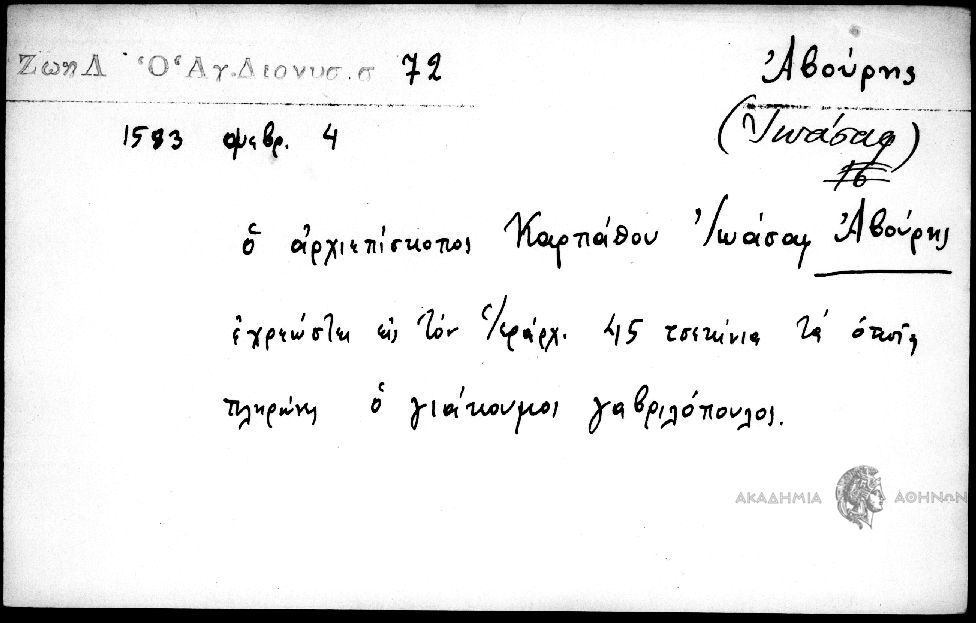 ΖωηΔ Ὁ Ἁγ.Διονυσ.σ 72
Ἀβούρης
(Ἰωάσαφ)
16
1583 φεβρ. 4
ὁ ἀρχιεπίσκοπος Καρπάθου Ἰωάσαφ Ἀβούρης
ἐχρεώστει εἰς τόν Ἱεράρχ. 45 τσεκίνια τά ὁποῖα
πληρώνει ὁ γιάκουμος γαβριλόπουλος.
ΑΚΑΔΗΜΙΑ ΑΘΗΝΩΝ